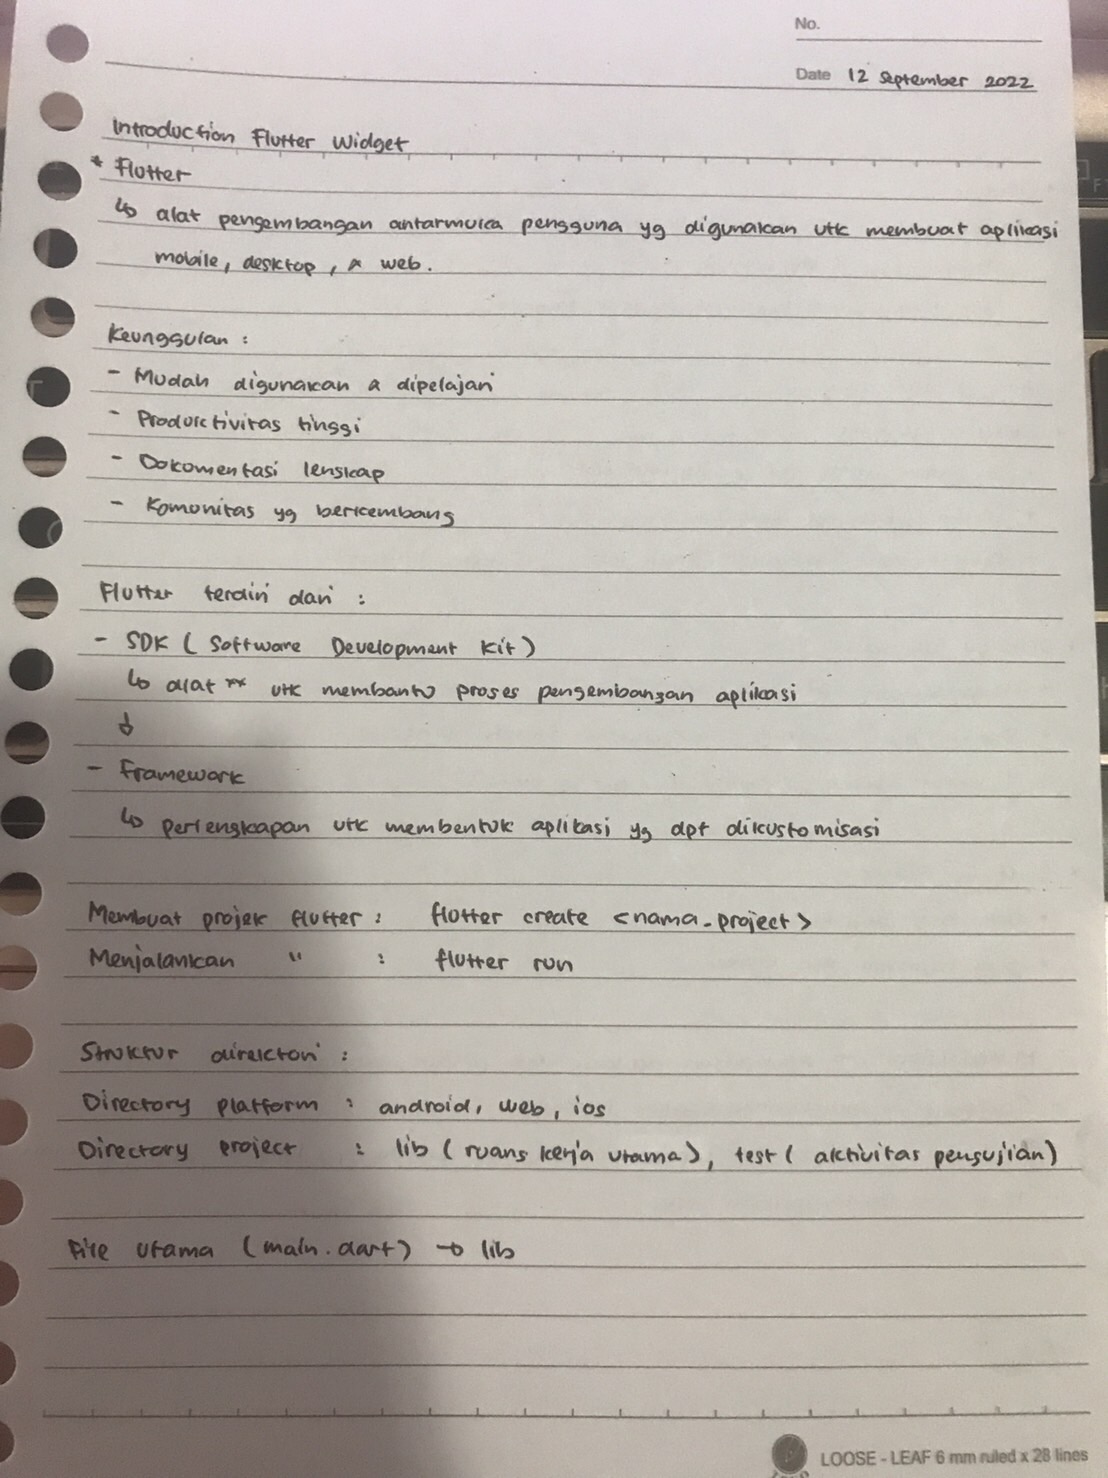 No.
Date 12 September 2022
Introduction Flutter Widget
* Flutter
↳ alat pengembangan antarmuka pengguna yg digunakan utk membuat aplikasi
mobile, desktop, & web.
Keunggulan :
- Mudah digunakan & dipelajari
- Produktivitas tinggi
- Dokumentasi lengkap
- Komunitas yg berkembang
Flutter terdiri dari :
- SDK ( Software Development Kit )
↳ alat " utk membantu proses pengembangan aplikasi
↓
- Framework
↳ perlengkapan utk membentuk aplikasi yg dpt dikustomisasi
Membuat projek flutter : flutter create <nama_project>
Menjalankan " : flutter run
Struktur direktori :
Directory platform : android, web, ios
Directory project : lib ( ruang kerja utama ), test ( aktivitas pengujian )
File utama ( main.dart ) → lib
LOOSE - LEAF 6 mm ruled x 28 lines